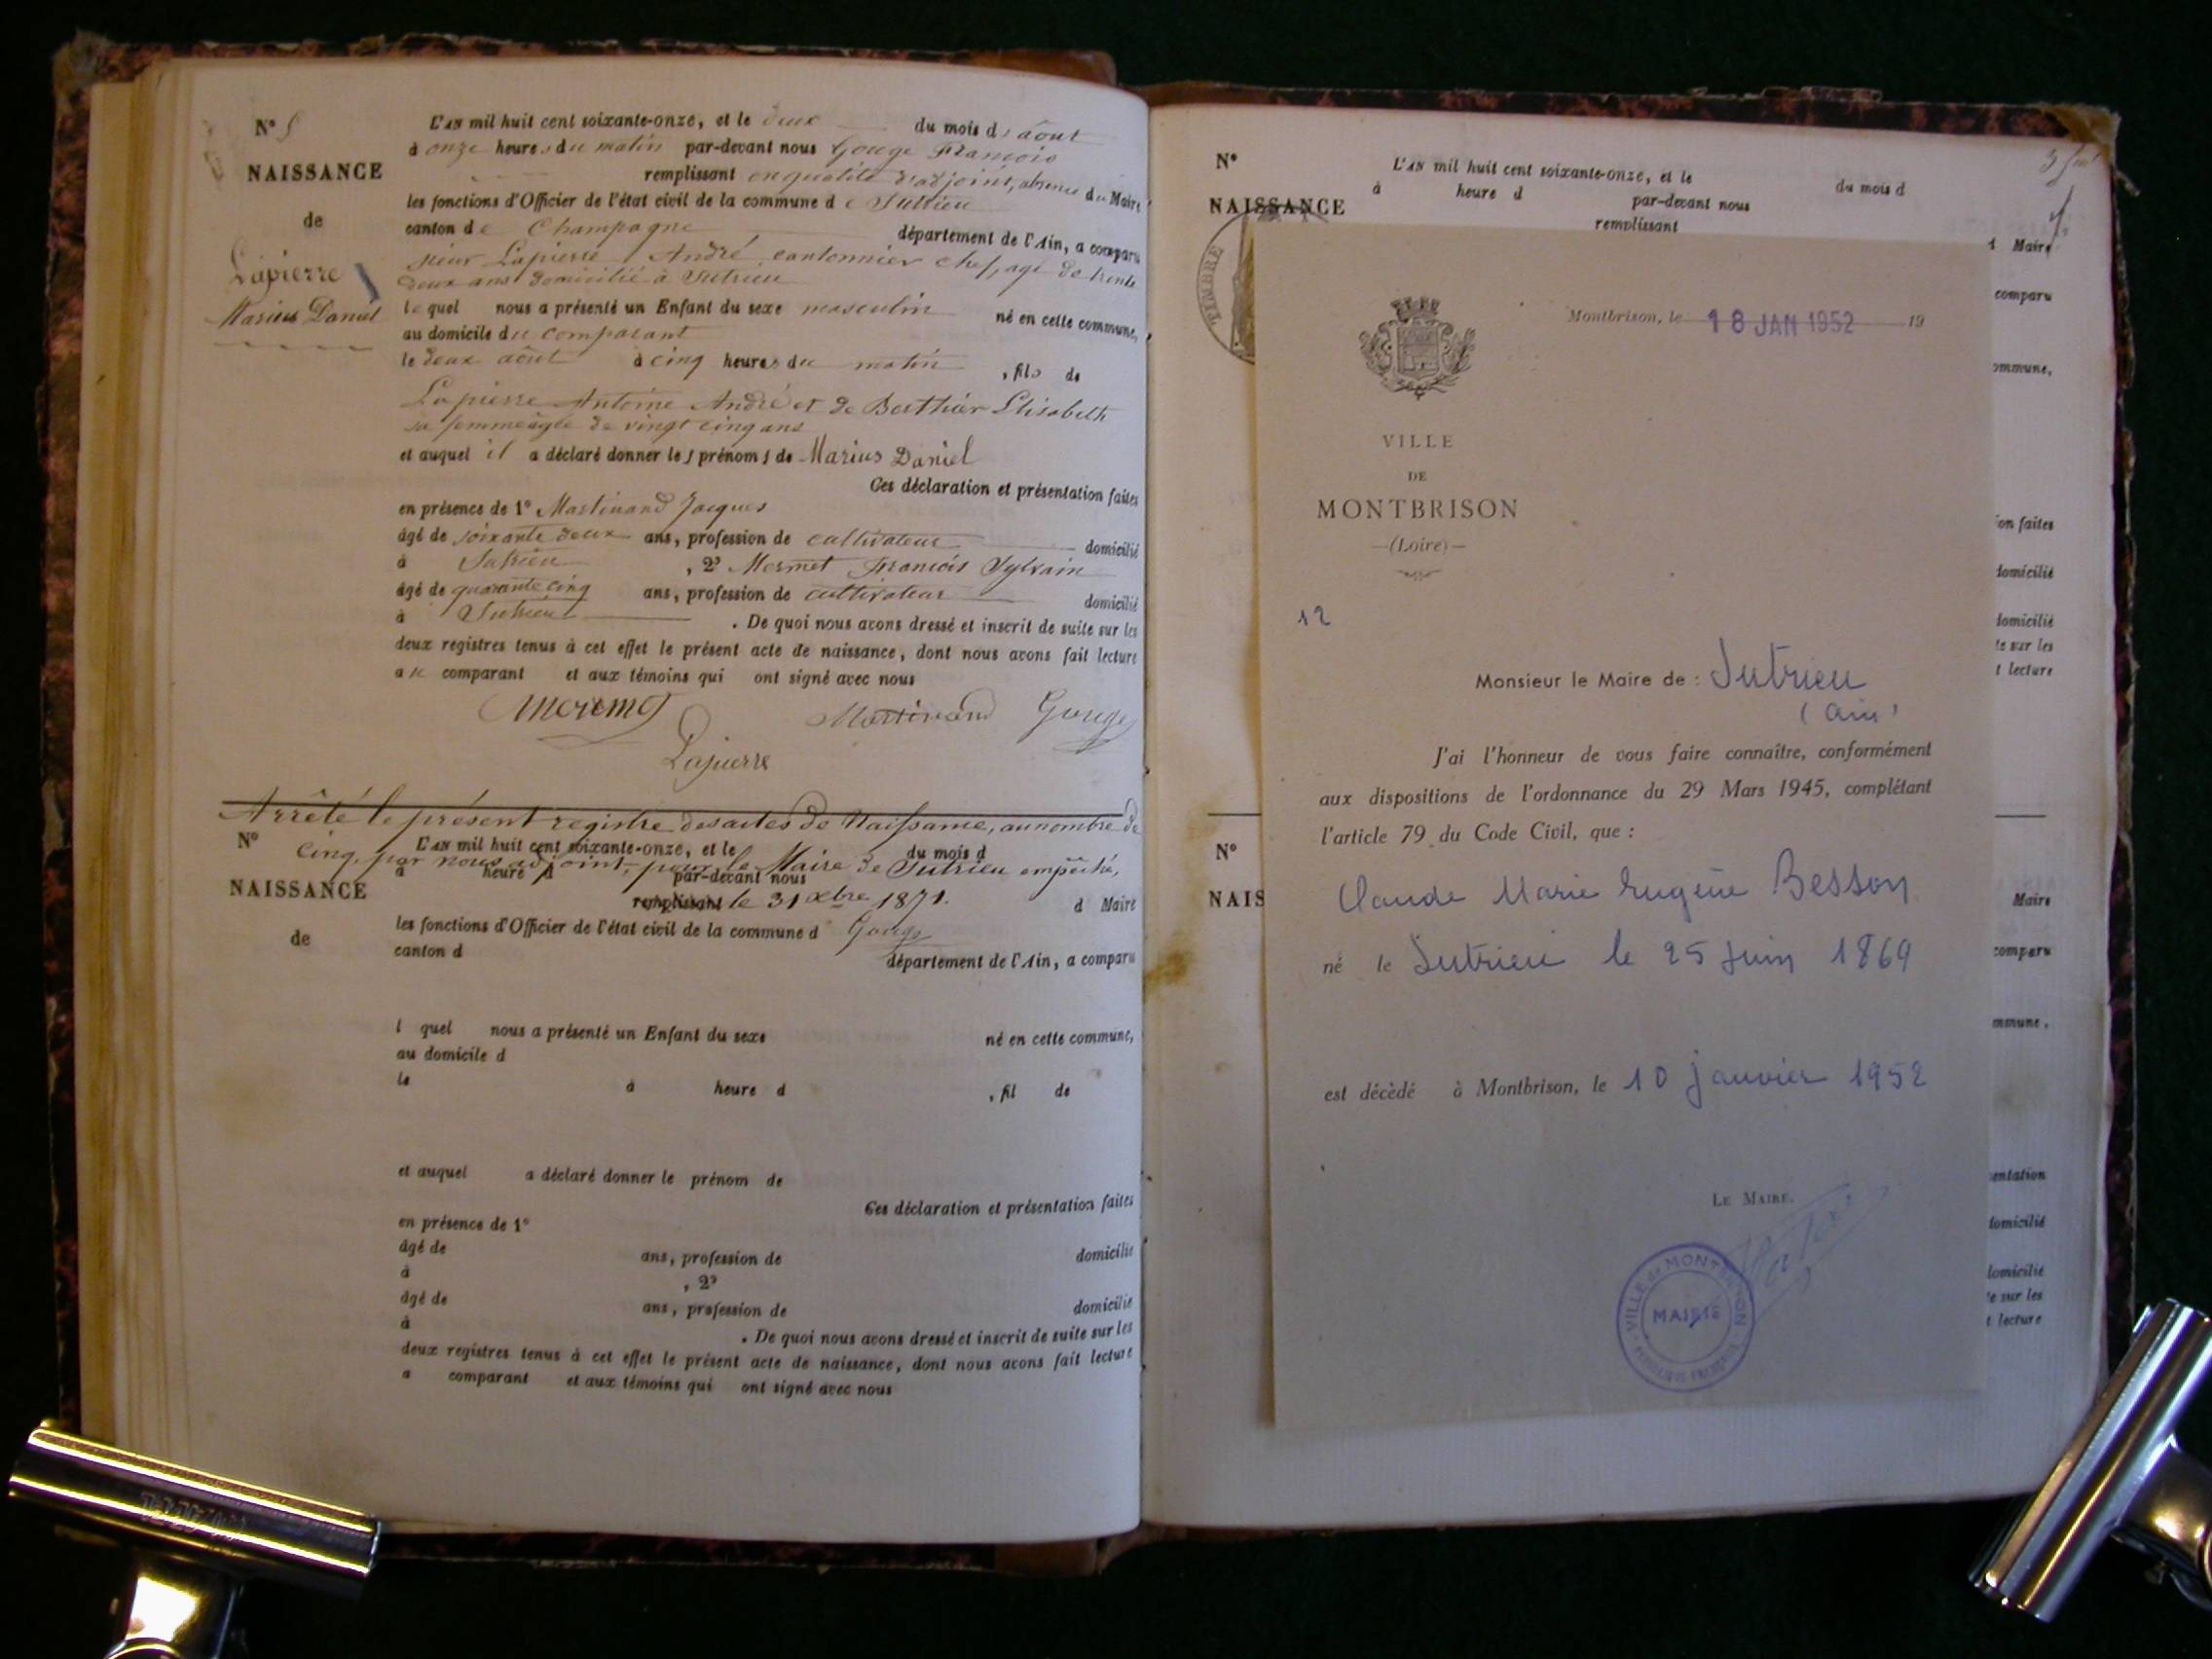 N° 5
NAISSANCE
de
Lapierre
Marius Daniel
L'AN mil huit cent soixante-onze, et le deux du mois d'août
à onze heures du matin par-devant nous Gouge François
remplissant en qualité d'adjoint, absence du Maire
les fonctions d'Officier de l'état civil de la commune de Sutrieu
canton de Champagne département de l'Ain, a comparu
sieur Lapierre André, cantonnier chef, agé de trente
deux ans domicilié à Sutrieu
lequel nous a présenté un Enfant du sexe masculin né en cette commune,
au domicile du comparant
le deux août à cinq heures du matin , fils de
Lapierre Antoine André et de Berthier Elisabeth
sa femme âgée de vingt cinq ans
et auquel il a déclaré donner les prénoms de Marius Daniel
Ces déclaration et présentation faites
en présence de 1° Martinand Jacques
âgé de soixante deux ans, profession de cultivateur domicilié
à Sutrieu , 2° Mermet François Sylvain
âgé de quarante cinq ans, profession de cultivateur domicilié
à Sutrieu . De quoi nous avons dressé et inscrit de suite sur les
deux registres tenus à cet effet le présent acte de naissance, dont nous avons fait lecture
au comparant et aux témoins qui ont signé avec nous
Martinand Gouge
Lapierre
Arrêté le présent registre des actes de Naissance, au nombre de
N° L'AN mil huit cent soixante-onze, et le du mois d
cinq, par nous adjoint, pour le Maire de Sutrieu empêché,
à heure d par-devant nous
NAISSANCE
remplissant le 31 xbre 1871. d Maire
de
les fonctions d'Officier de l'état civil de la commune d Gouge
canton d département de l'Ain, a comparu
l quel nous a présenté un Enfant du sexe né en cette commune,
au domicile d
le à heure d , fil de
et auquel a déclaré donner le prénom de
Ces déclaration et présentation faites
en présence de 1°
âgé de ans, profession de domicilié
à , 2°
âgé de ans, profession de domicilié
à . De quoi nous avons dressé et inscrit de suite sur les
deux registres tenus à cet effet le présent acte de naissance, dont nous avons fait lecture
a comparant et aux témoins qui ont signé avec nous
N°
L'AN mil huit cent soixante-onze, et le du mois d
à heure d par-devant nous
NAISSANCE
remplissant
Maire
TIMBRE
comparu
Montbrison, le 18 JAN 1952 19
VILLE
DE
MONTBRISON
(Loire)
12
Monsieur le Maire de : Sutrieu
(Ain)
J'ai l'honneur de vous faire connaître, conformément
aux dispositions de l'ordonnance du 29 Mars 1945, complétant
l'article 79 du Code Civil, que :
Claude Marie Eugène Besson
né le Sutrieu le 25 Juin 1869
est décédé à Montbrison, le 10 janvier 1952
LE MAIRE,
VILLE de MONTBRISON
MAIRIE
ommune,
ion faites
domicilié
domicilié
te sur les
t lecture
N°
NAIS
Maire
comparu
mmune,
entation
domicilié
domicilié
te sur les
t lecture